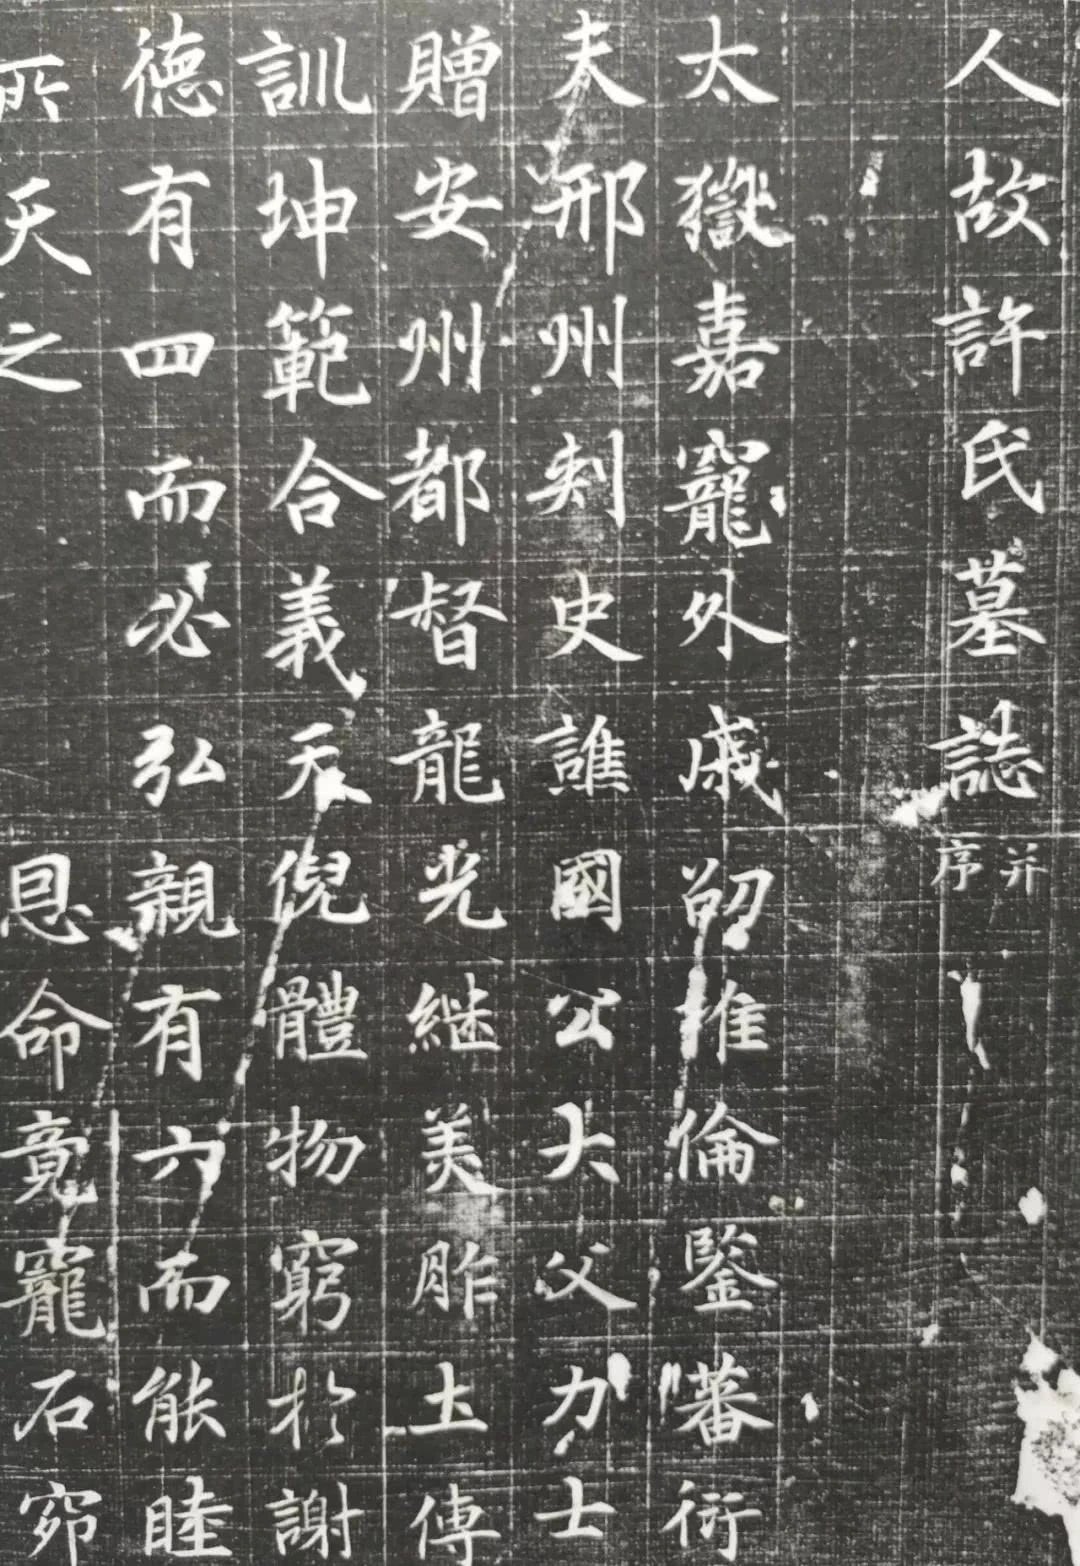 人故許氏墓誌并序
太嶽嘉寵外戚劭推倫鑒蕃衍
夫邢州刾史譙國公大父力士
贈安州都督龍光継美胙土傳
訓坤範合義天倪體物窮扵謝
德有四而必弘親有六而能睦
所天之恩命竟寵石窌